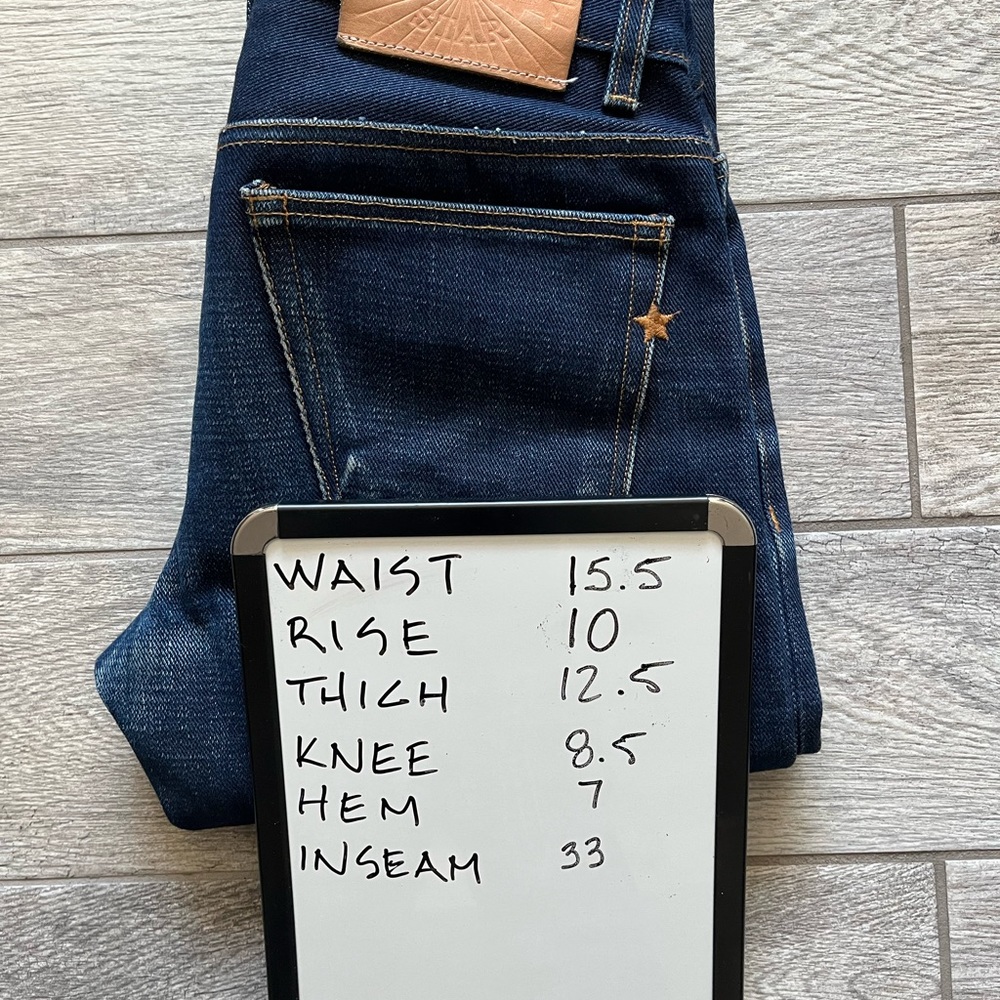 STAR
WAIST 15.5
RISE 10
THIGH 12.5
KNEE 8.5
HEM 7
INSEAM 33